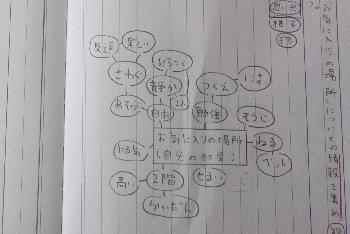 お気に入りの場所についての情報を集め
思い出
様子
物
友達
楽しい
さわぐ
あそぶ
おちつく
静か
1人
自由
つくえ
いす
勉強
そうじ
ねる
ベッド
お気に入りの場所
(自分の部屋)
せまい
2階
高い
かいだん